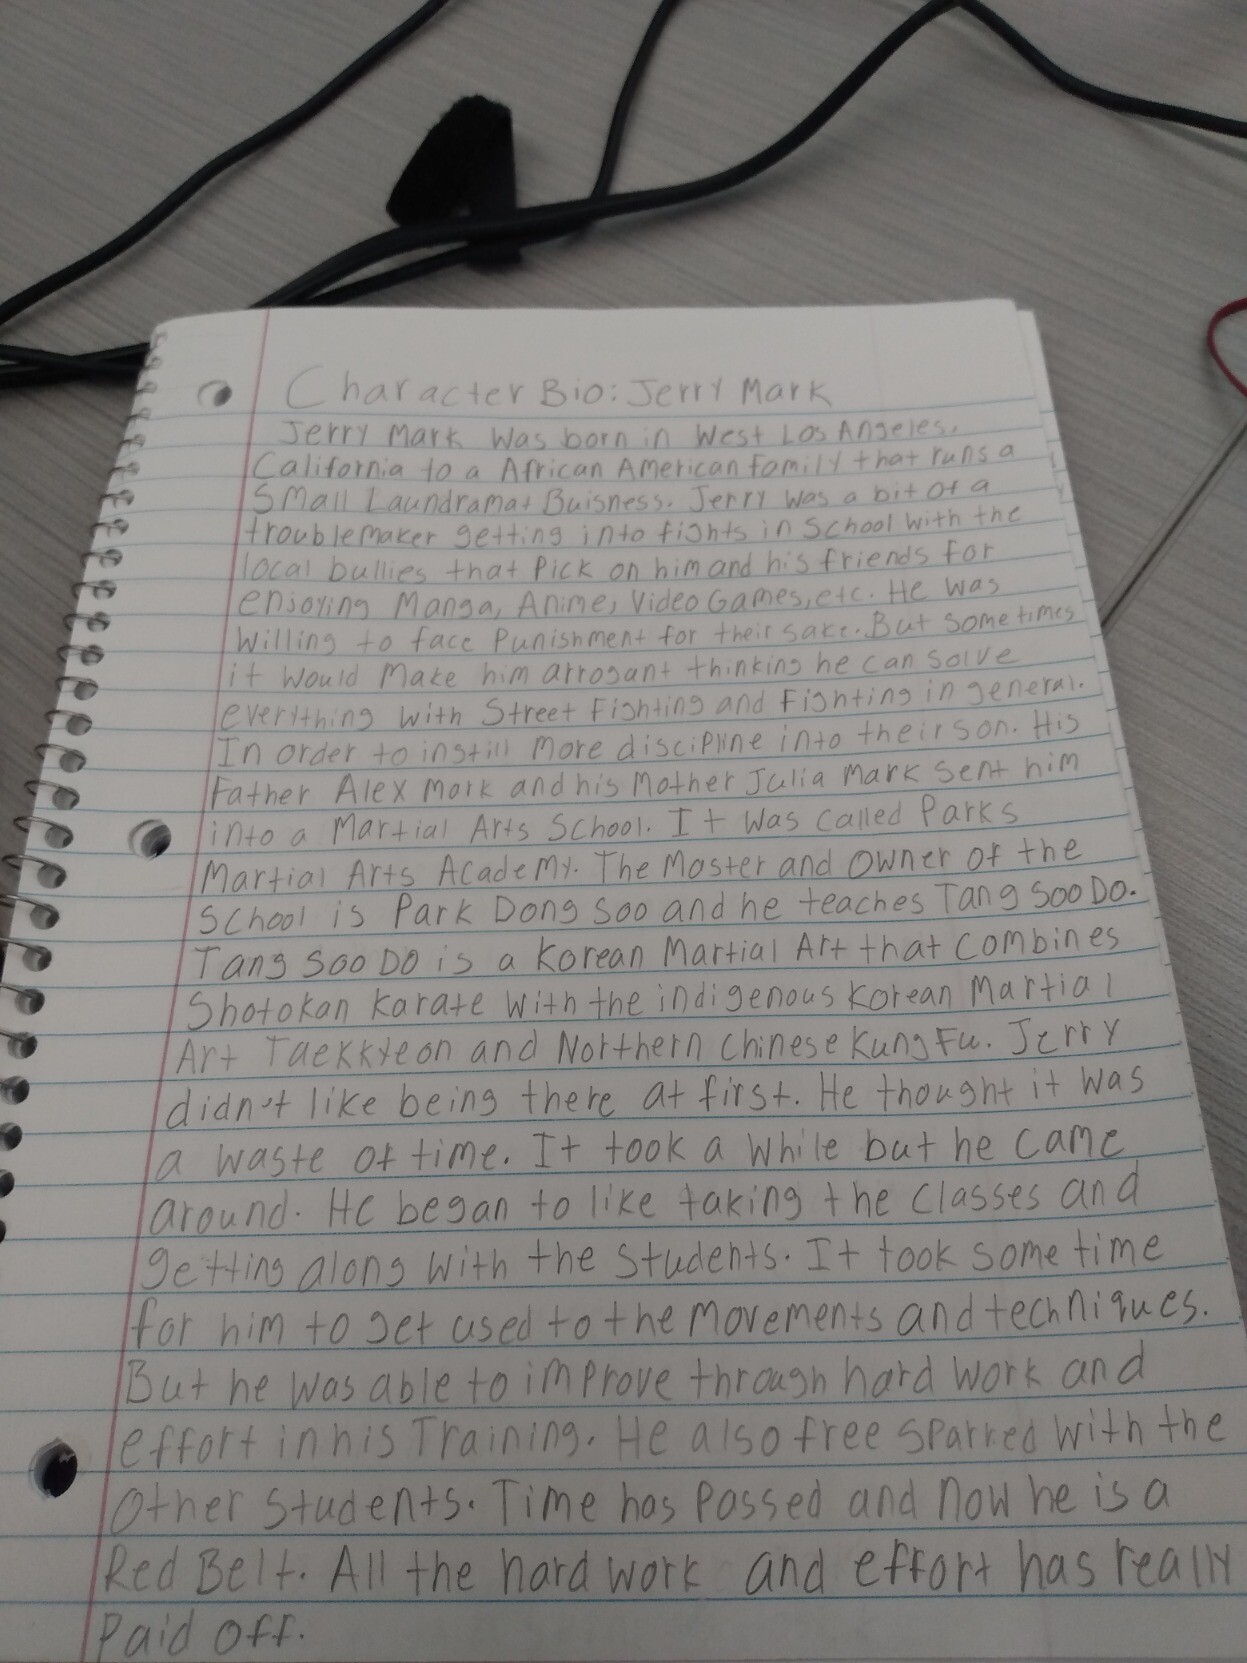 Character Bio: Jerry Mark
Jerry Mark was born in West Los Angeles,
California to a African American family that runs a
Small Laundramat Buisness. Jerry was a bit of a
troublemaker getting into fights in School with the
local bullies that Pick on him and his friends for
enjoying Manga, Anime, Video Games, etc. He was
willing to face Punishment for their sake. But Sometimes
it would Make him arrogant thinking he can solve
everything with Street Fighting and Fighting in general.
In order to instill more discipline into their son. His
Father Alex Mark and his Mother Julia Mark sent him
into a Martial Arts School. It was called Parks
Martial Arts Academy. The Master and Owner of the
School is Park Dong Soo and he teaches Tang Soo Do.
Tang Soo Do is a Korean Martial Art that combines
Shotokan Karate with the indigenous Korean Martial
Art Taekkyeon and Northern Chinese Kung Fu. Jerry
didn't like being there at first. He thought it was
a waste of time. It took a while but he came
around. He began to like taking the classes and
getting along with the students. It took some time
for him to get used to the Movements and techniques.
But he was able to improve through hard work and
effort in his Training. He also free sparred with the
Other Students. Time has Passed and now he is a
Red Belt. All the hard work and effort has really
Paid off.